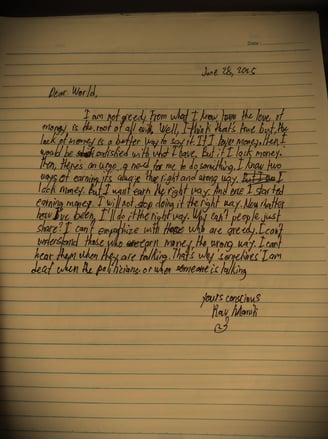 Date:
June 28, 2025
Dear World,
I am not greedy from what I know from the love of
money, is the root of all evils. Well, I think that's true but, the
lack of money is a better way to say it. If I love money, then I
would be satisfied with what I have. But if I lack money.
then, there's an urge, a need for me to do something. I know two
ways of earning, its always the right and wrong way. If I
lack money. But I want earn the right way. And once I started
earning money. I will not stop doing it the right way. No matter
how I've been, I'll do it the right way. Why can't people just
share? I can't empathize with those who are greedy. I can't
understand those who earn money the wrong way. I cant
hear them when they are talking. That's why sometimes I am
deaf when the politicians or when someone is talking
yours conscious